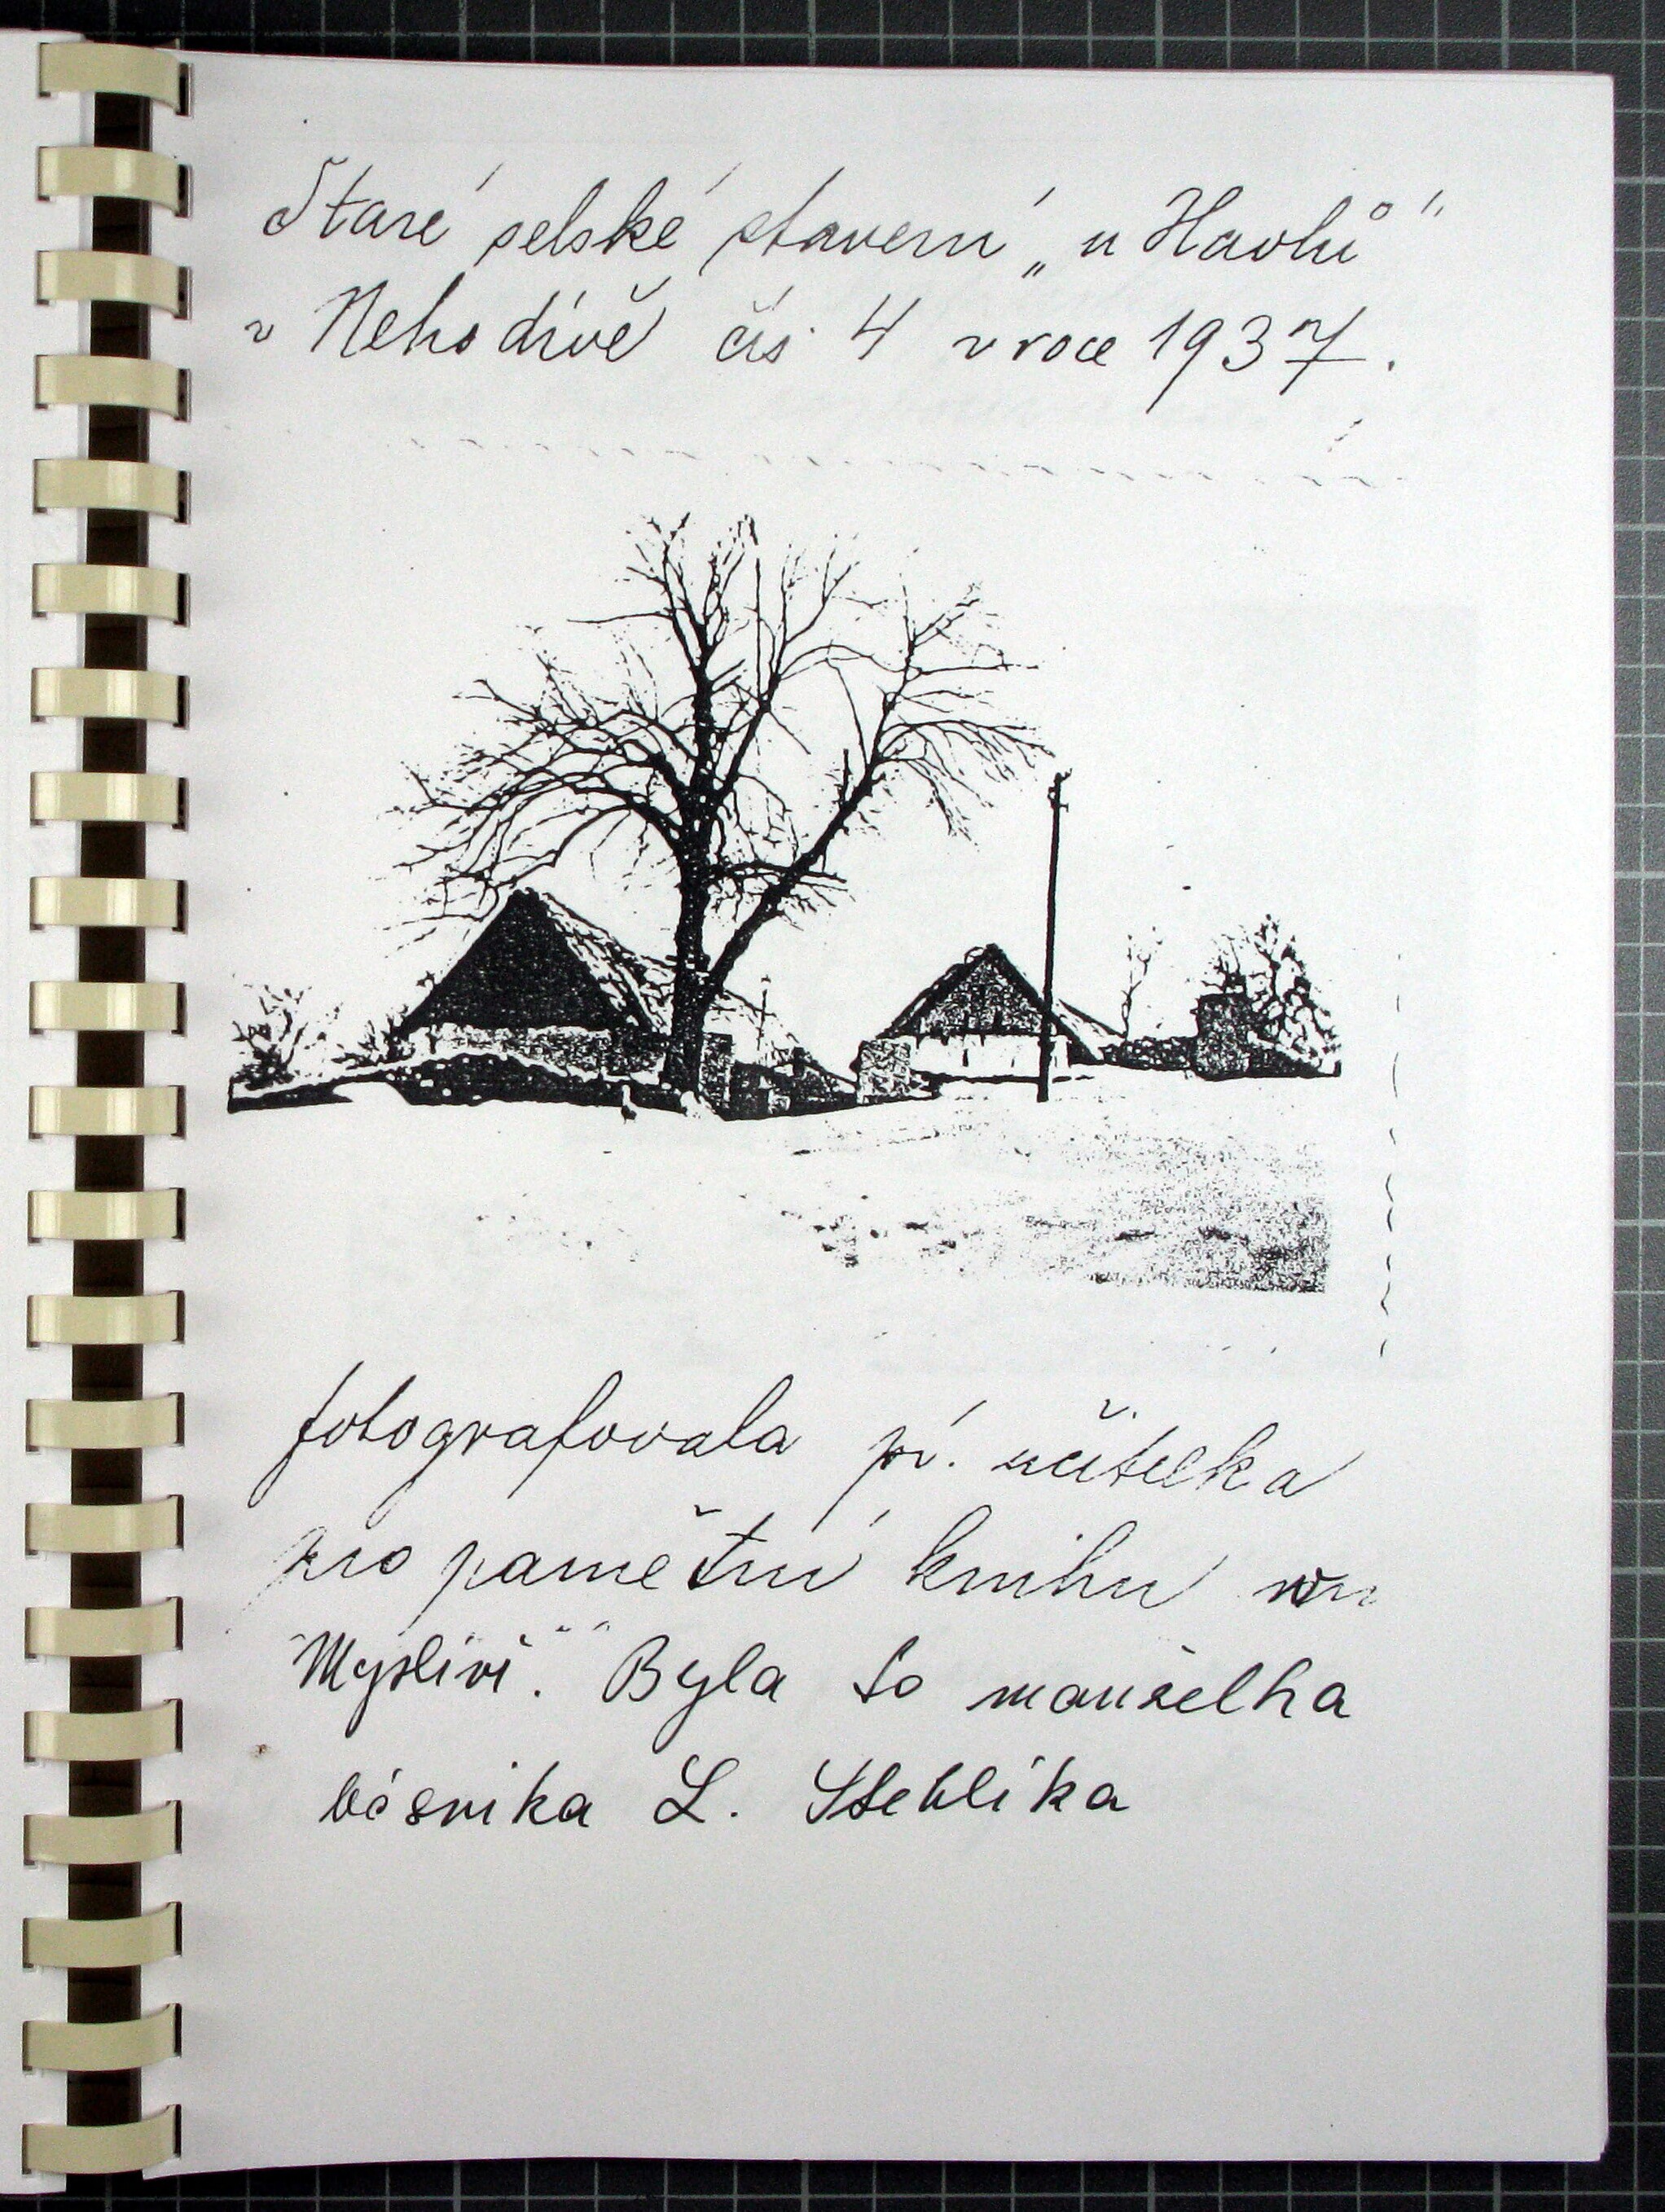 Staré selské stavení „u Havlů"
v Nehodívě čís 4 v roce 1937.
fotografovala pí. učitelka
pro pamětní knihu
Myslíví. Byla to manželka
básníka L. Stehlíka